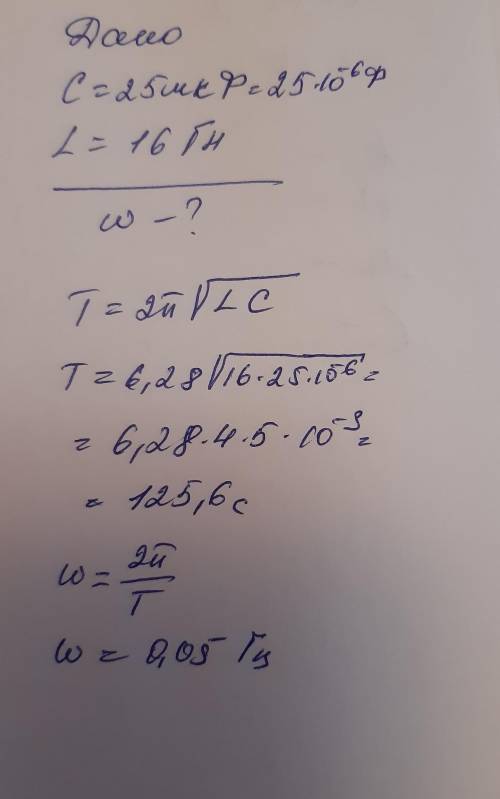 Дано
C = 25 мкФ = 25·10⁻⁶ Ф
L = 16 Гн
w – ?
T = 2π√LC
T = 6,28√16·25·10⁻⁶ =
= 6,28·4·5·10⁻³ =
= 125,6 с
w = 2π/T
w = 0,05 Гц